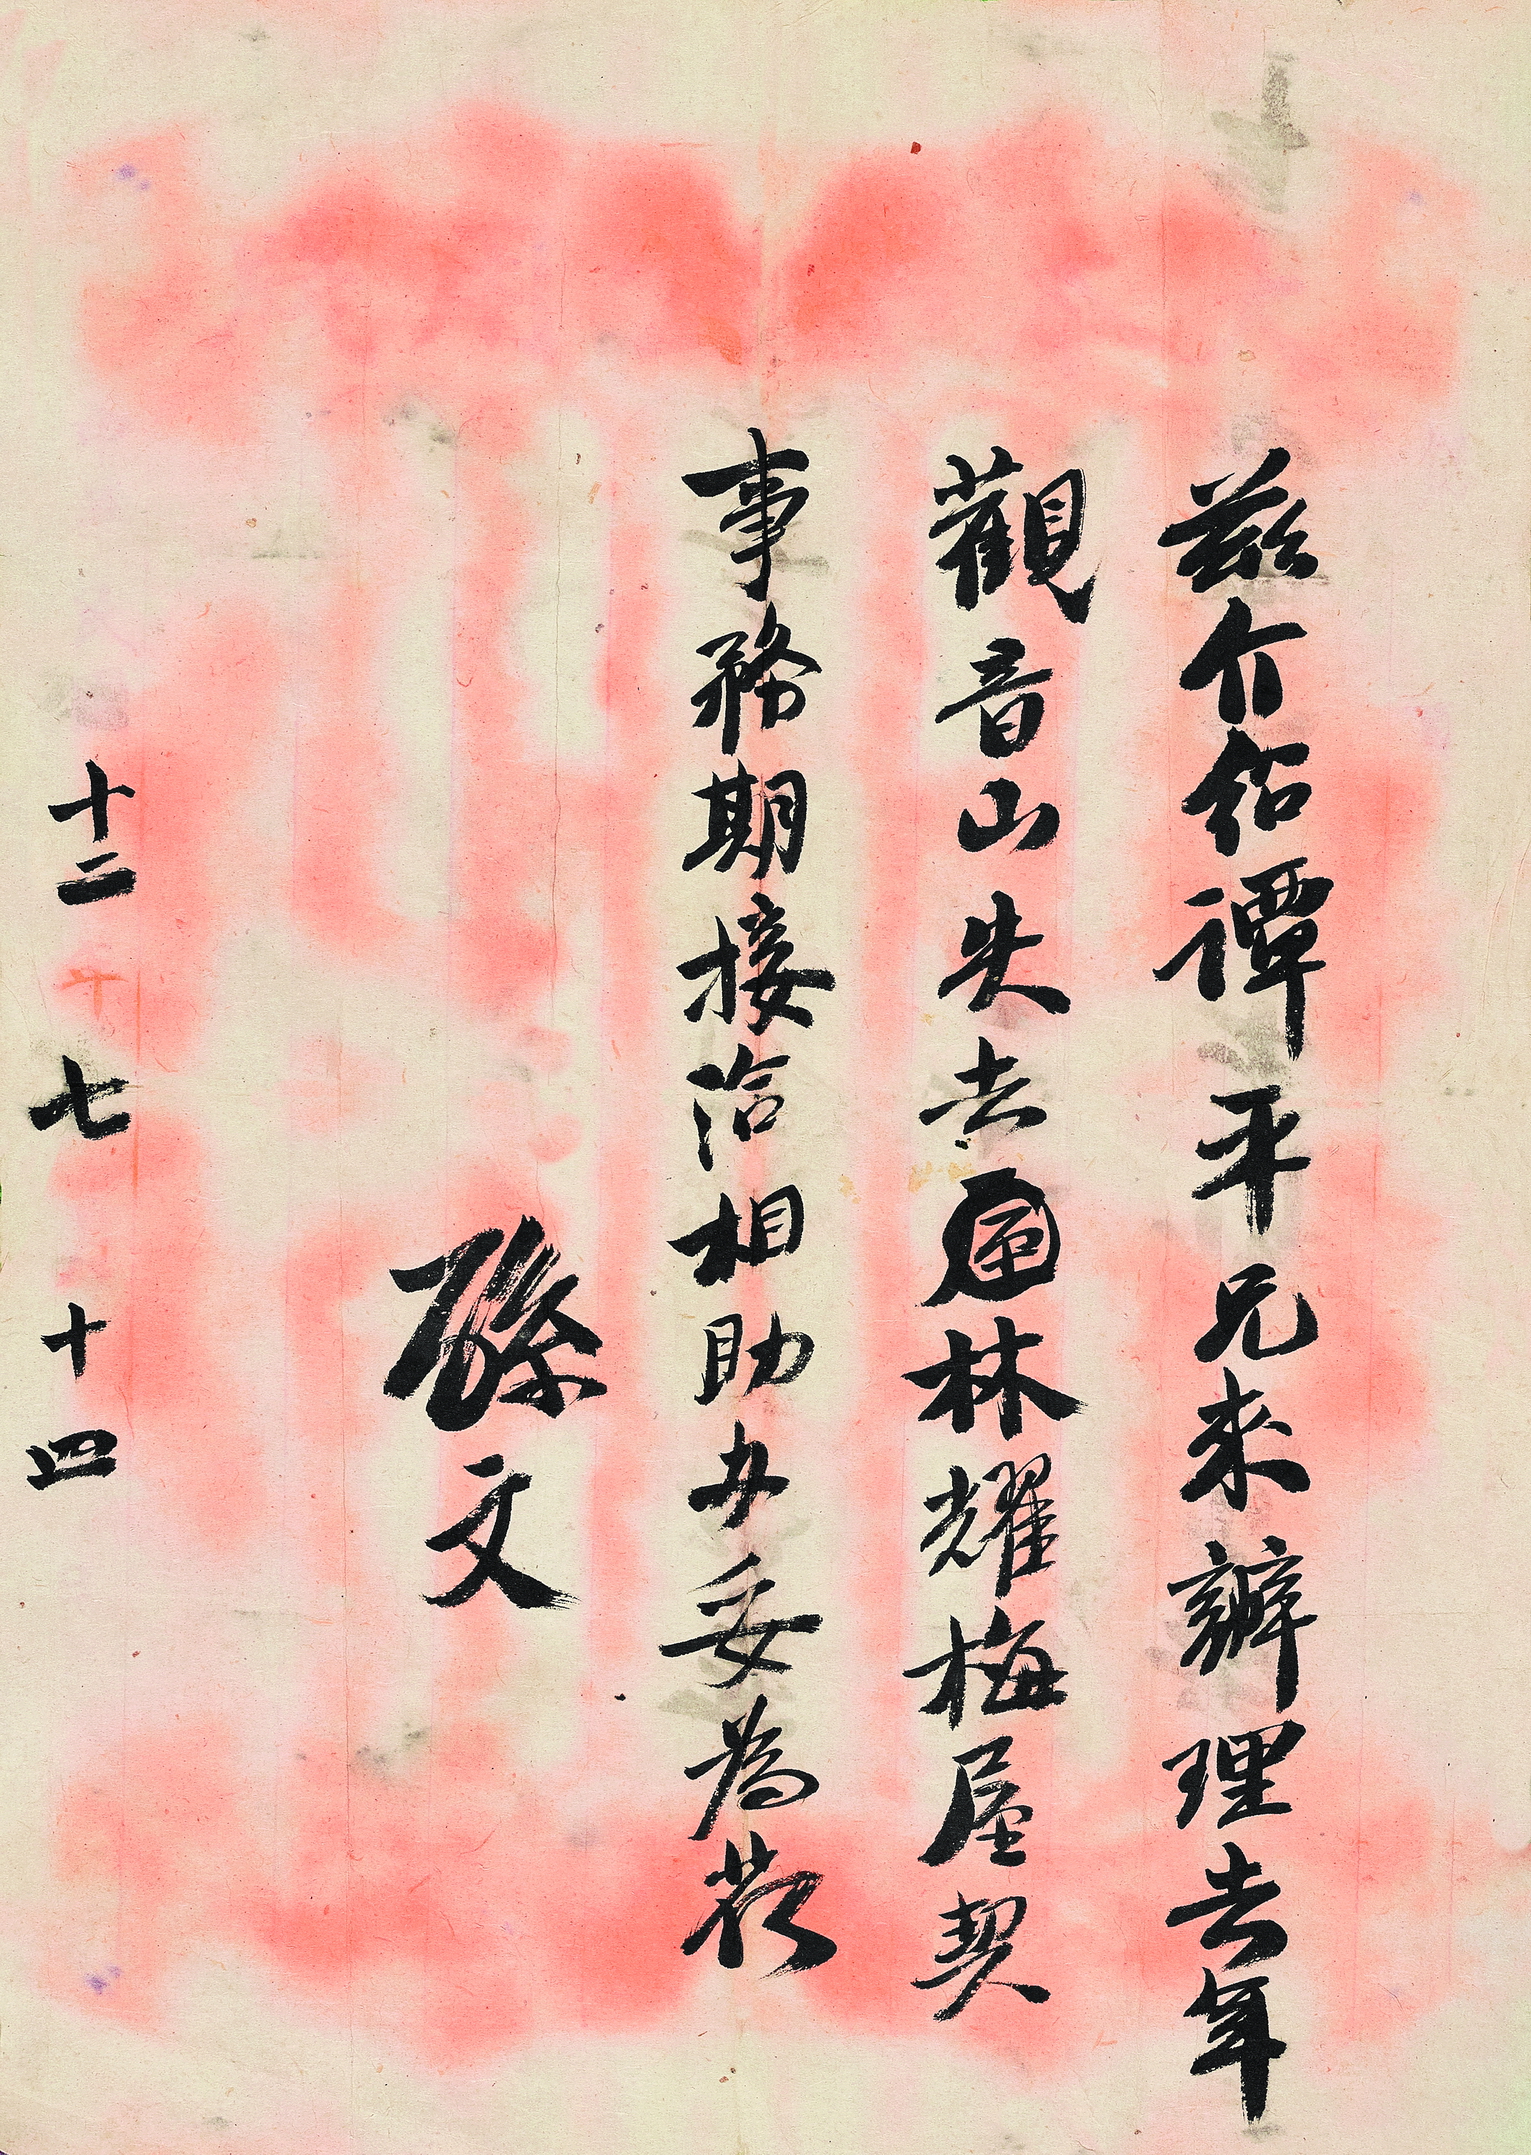 兹介紹譚平兄来辦理去年
觀音山失去林耀梅屋契
事務期接洽相助办妥為荷
孫文
十二 七 十四